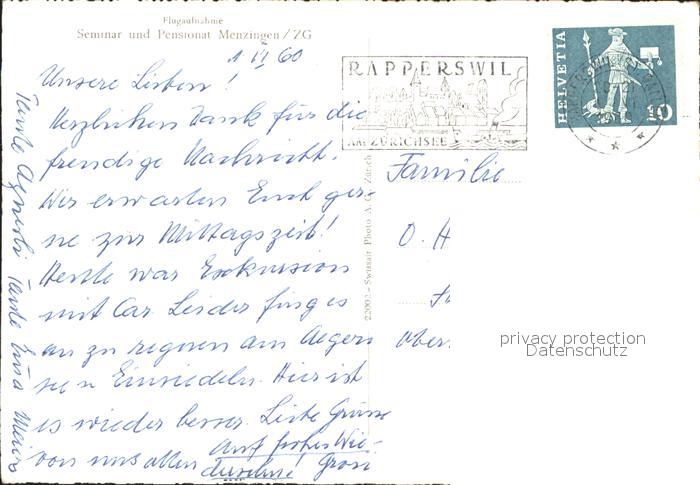 Flugaufnahme
Seminar und Pensionat Menzingen / ZG
1. VI 60
Unsere Lieben!
Herzlichen Dank für die
freudige Nachricht.
Wir erwarten Euch ger-
ne zur Mittagszeit!
Heute war Exkursion
mit Car. Leider fing es
an zu regnen am Aegeri
see u Einsiedeln. Hier ist
es wieder besser. Liebe Grüsse
von uns allen
auf frohes Wie-
dersehn!
Tante Tante
22002 - Swissair Photo A. G. Zürich
RAPPERSWIL
AM ZÜRICHSEE
HELVETIA
10
Familie
O. H
Ober.
privacy protection
Datenschutz